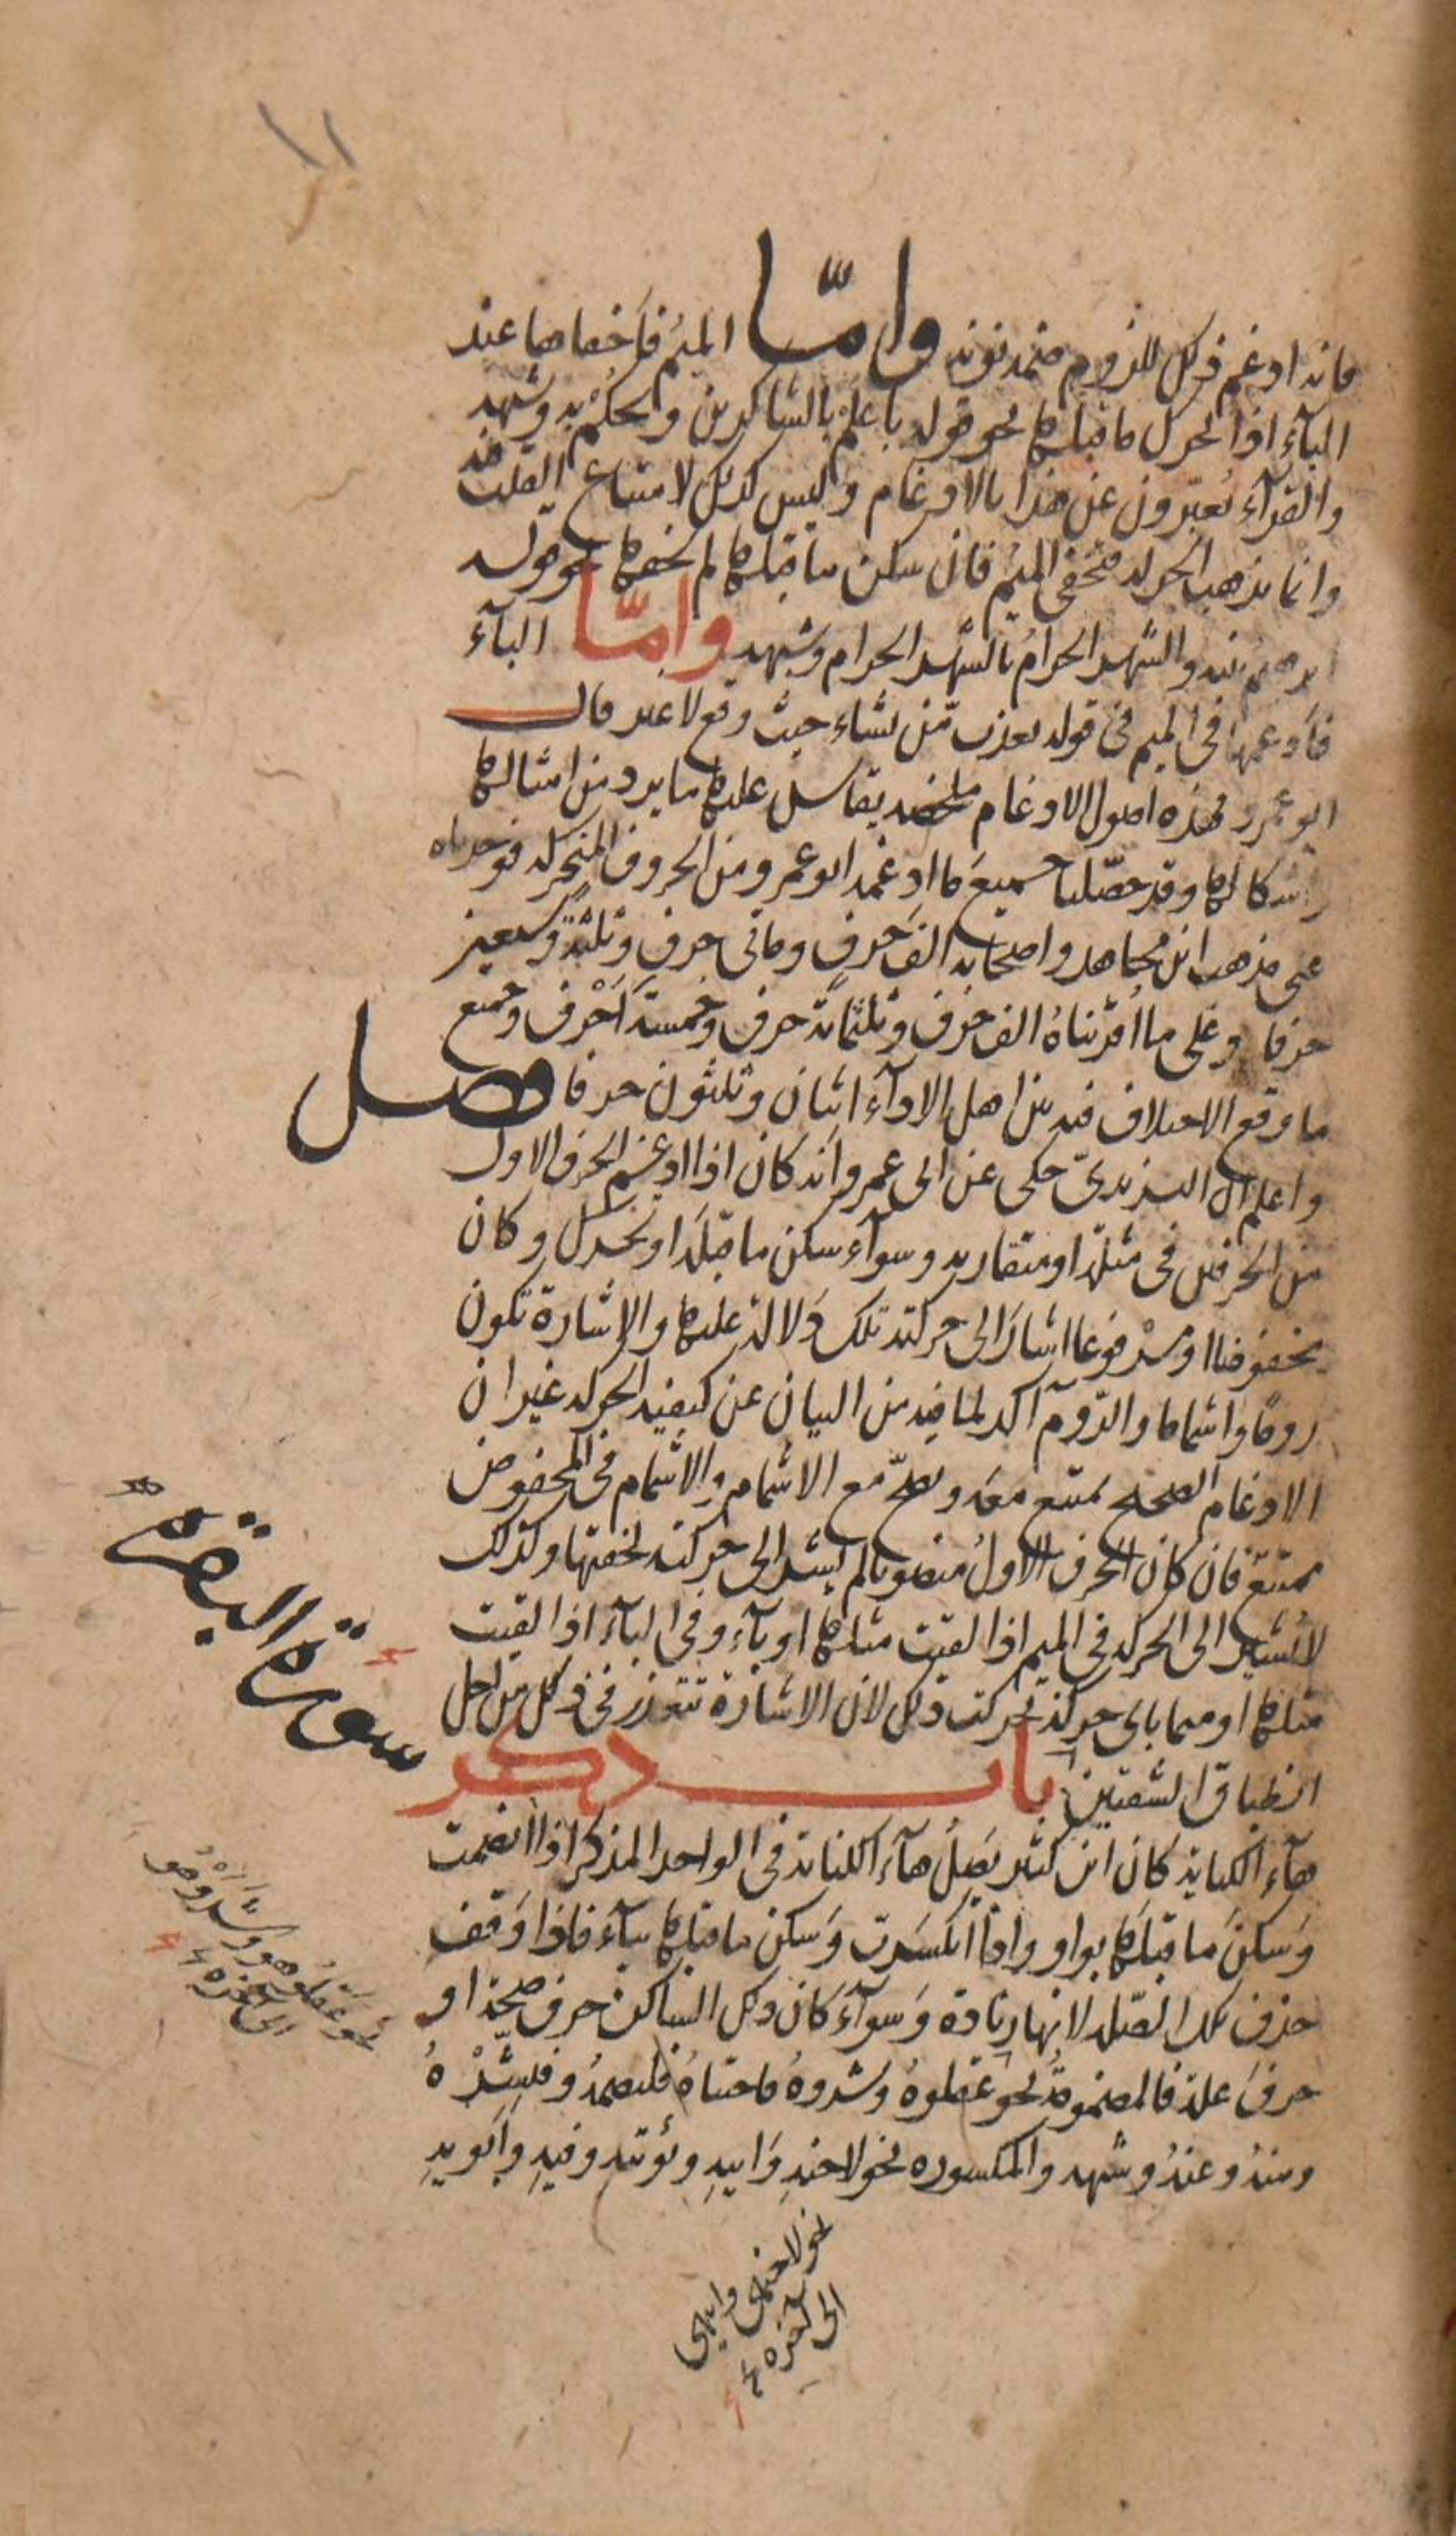 ١١
فانه ادغم ذلك للزوم ضمة نونه واما الميم فاخفاها عند
الباء اذا تحرك ما قبلها نحو قوله باعلم بالشاكرين ويحكم به وشبهه
والقراء يعبرون عن هذا بالادغام وليس كذلك لامتناع القلب فيه
وانما تذهب الحركة فتخفى الميم فان سكن ما قبلها لم يخفها نحو قوله
ابرهيم بنيه والشهر الحرام بالشهر الحرام وشبهه واما الباء
فادغمها في الميم في قوله يعذب من يشاء حيث وقع لا غير قال
ابو عمرو فهذه اصول الادغام ملخصة يقاس عليها ما يرد من امثالها
واشكالها وقد حصلنا جميع ما ادغمه ابو عمرو من الحروف المتحركة فوجدناه
على مذهب ابن مجاهد واصحابه الف حرف ومائى حرف وثلثة وسبعين
حرفا وعلى ما اقرئناه الف حرف وثلثمائة حرف وخمسة احرف وجميع
ما وقع الاختلاف فيه بين اهل الاداء اثنان وثلثون حرفا فصل
واعلم ان اليزيدي حكى عن ابى عمرو انه كان اذا ادغم الحرف الاول
من الحرفين في مثله او متقاربه وسواء سكن ما قبله او تحرك وكان
مخفوضا او مرفوعا اشار الى حركته تلك دلالة عليها والاشارة تكون
روما واشماما والروم آكد لما فيه من البيان عن كيفية الحركة غير ان
الادغام الصحيح يمتنع معه ويصح مع الاشمام والاشمام في المخفوض
ممتنع فان كان الحرف الاول منصوبا لم يشر الى حركته لخفتها وكذلك
لا يشير الى الحركة في الميم اذا لقيت مثلها او باء وفي الباء اذا لقيت
مثلها او ميما باى حركة تحركت ذلك لان الاشارة تتعذر في ذلك من اجل
انطباق الشفتين باب ذكر
هاء الكناية كان ابن كثير يصل هاء الكناية في الواحد المذكر اذا انضمت
وسكن ما قبلها بواو واذا انكسرت وسكن ما قبلها بياء فاذا وقف
حذف تلك الصلة لانها زيادة وسواء كان ذلك الساكن حرف صحة او
حرف علة فالمضمومة نحو عقلوه وشروه فاجتباه فليصمه وفليبشره
ومنه وعنه وشبهه والمكسورة نحو لاخيه وابيه ونؤتيه وفيه وابويه
سورة البقرة
نحو عقلوهو وشروهو
الى آخره
نحو لاخيهى وابيهى
الى آخره